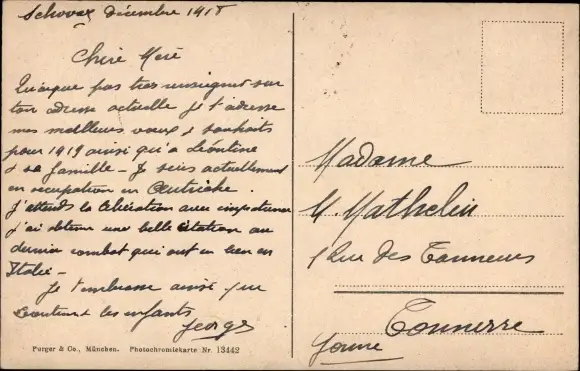 décembre 1918
Chère Mère
Quoique pas très renseigné sur
ton adresse actuelle je t'adresse
mes meilleurs vœux & souhaits
pour 1919 ainsi qu'à Léontine
& sa famille - Je suis actuellement
en occupation en Autriche.
J'attends la libération avec impatience
j'ai obtenu une belle citation au
dernier combat qui ont eu lieu en
Italie -
Je t'embrasse ainsi que
Léontine & les enfants
Georges
Madame
M. Mathelin
1 Rue des Tanneurs
Tonnerre
Yonne
Purger & Co., München. Photochromiekarte Nr. 13442